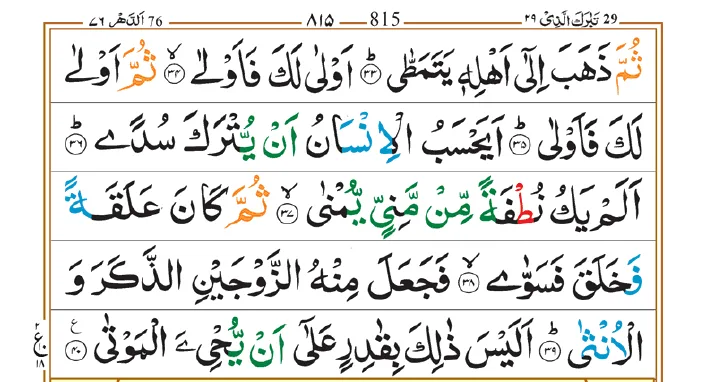 ٧٦ اَلدَّهْر 76 ٨١٥ 815 ٢٩ تَبٰرَكَ الَّذِىْ 29
ثُمَّ ذَهَبَ اِلٰٓى اَهْلِهٖ يَتَمَطّٰى ؕ‏ ﴿۳۳﴾ اَوْلٰى لَكَ فَاَوْلٰى ۙ‏ ﴿۳۴﴾ ثُمَّ اَوْلٰى
لَكَ فَاَوْلٰى ؕ‏ ﴿۳۵﴾ اَيَحْسَبُ الْاِنْسَانُ اَنْ يُّتْرَكَ سُدًى ؕ‏ ﴿۳۶﴾
اَلَمْ يَكُ نُطْفَةً مِّنْ مَّنِىٍّ يُّمْنٰى ۙ‏ ﴿۳۷﴾ ثُمَّ كَانَ عَلَقَةً
فَخَلَقَ فَسَوّٰى ۙ‏ ﴿۳۸﴾ فَجَعَلَ مِنْهُ الزَّوْجَيْنِ الذَّكَرَ وَ
الْاُنْثٰى ؕ‏ ﴿۳۹﴾ اَلَيْسَ ذٰلِكَ بِقٰدِرٍ عَلٰٓى اَنْ يُّحْیِۦَ الْمَوْتٰى ﴿۴۰﴾ ع
٢
ع
١٨